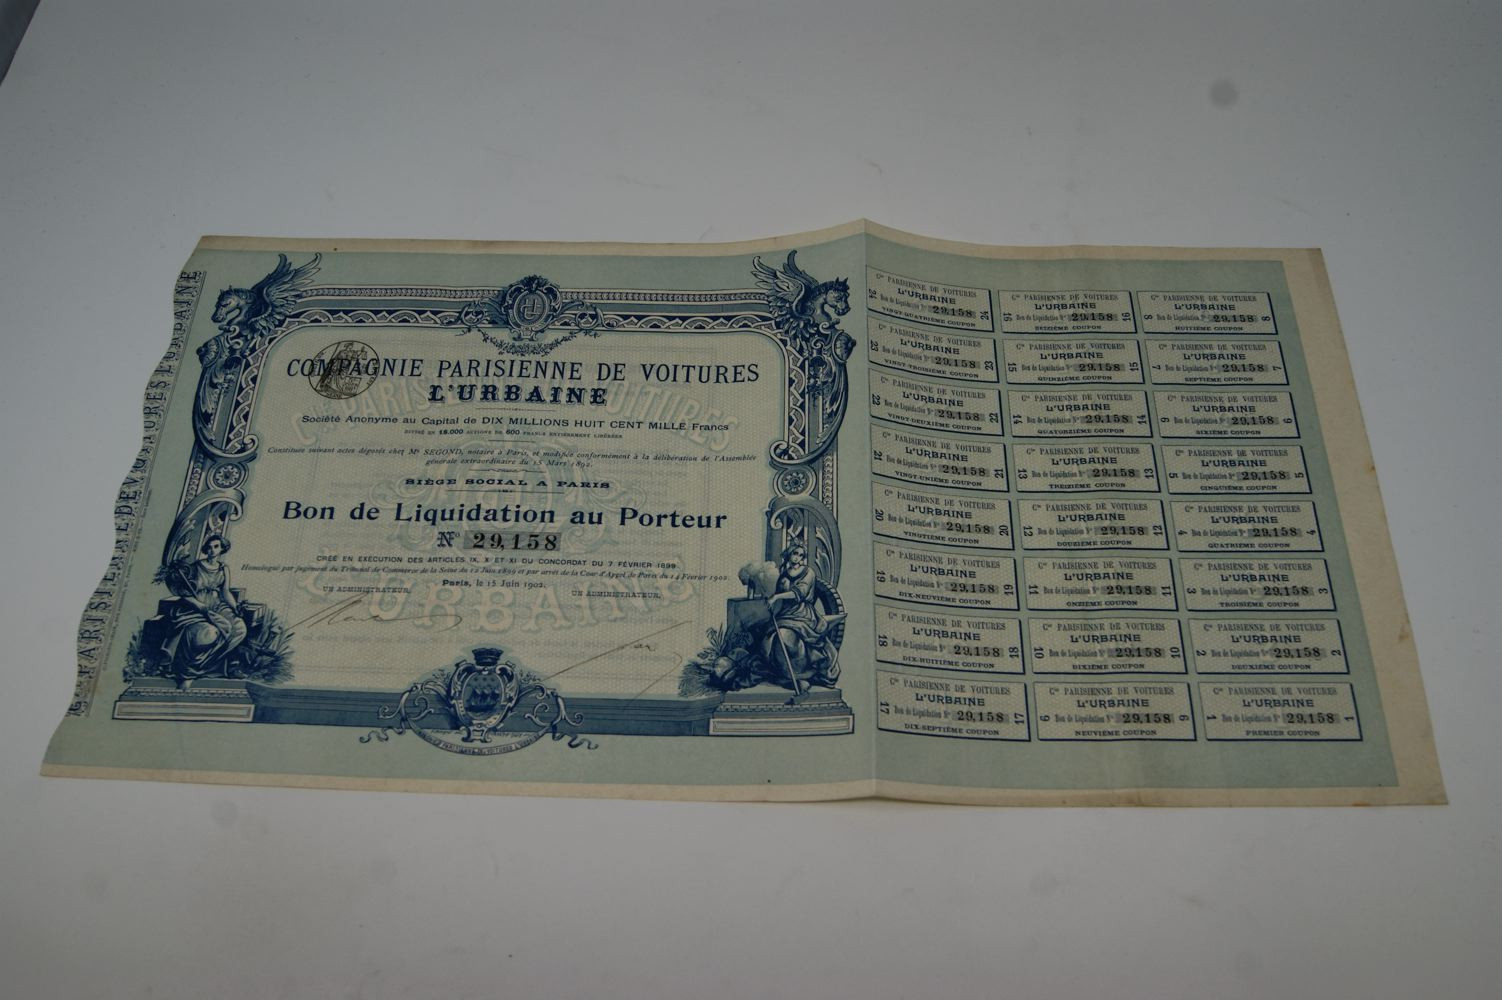 COMPAGNIE PARISIENNE DE VOITURES
L'URBAINE
Société Anonyme au Capital de DIX MILLIONS HUIT CENT MILLE Francs
DIVISÉ EN 18.000 ACTIONS DE 600 FRANCS ENTIÈREMENT LIBÉRÉES
Constituée suivant actes déposés chez Me SEGOND, notaire à Paris, et modifiée conformément à la délibération de l'Assemblée
générale extraordinaire du 15 Mars 1892.
SIÈGE SOCIAL A PARIS
Bon de Liquidation au Porteur
No 29,158
CRÉÉ EN EXÉCUTION DES ARTICLES IX, X ET XI DU CONCORDAT DU 7 FÉVRIER 1899
Homologué par jugement du Tribunal de Commerce de la Seine du 12 Juin 1899 et par arrêt de la Cour d'Appel de Paris du 14 Février 1902.
Paris, le 15 Juin 1902.
UN ADMINISTRATEUR, UN ADMINISTRATEUR,
Cie PARISIENNE DE VOITURES
L'URBAINE
Bon de Liquidation No 29,158
VINGT-QUATRIÈME COUPON
24 24
Cie PARISIENNE DE VOITURES
L'URBAINE
Bon de Liquidation No 29,158
SEIZIÈME COUPON
16 16
Cie PARISIENNE DE VOITURES
L'URBAINE
Bon de Liquidation No 29,158
HUITIÈME COUPON
8 8
Cie PARISIENNE DE VOITURES
L'URBAINE
Bon de Liquidation No 29,158
VINGT-TROISIÈME COUPON
23 23
Cie PARISIENNE DE VOITURES
L'URBAINE
Bon de Liquidation No 29,158
QUINZIÈME COUPON
15 15
Cie PARISIENNE DE VOITURES
L'URBAINE
Bon de Liquidation No 29,158
SEPTIÈME COUPON
7 7
Cie PARISIENNE DE VOITURES
L'URBAINE
Bon de Liquidation No 29,158
VINGT-DEUXIÈME COUPON
22 22
Cie PARISIENNE DE VOITURES
L'URBAINE
Bon de Liquidation No 29,158
QUATORZIÈME COUPON
14 14
Cie PARISIENNE DE VOITURES
L'URBAINE
Bon de Liquidation No 29,158
SIXIÈME COUPON
6 6
Cie PARISIENNE DE VOITURES
L'URBAINE
Bon de Liquidation No 29,158
VINGT-UNIÈME COUPON
21 21
Cie PARISIENNE DE VOITURES
L'URBAINE
Bon de Liquidation No 29,158
TREIZIÈME COUPON
13 13
Cie PARISIENNE DE VOITURES
L'URBAINE
Bon de Liquidation No 29,158
CINQUIÈME COUPON
5 5
Cie PARISIENNE DE VOITURES
L'URBAINE
Bon de Liquidation No 29,158
VINGTIÈME COUPON
20 20
Cie PARISIENNE DE VOITURES
L'URBAINE
Bon de Liquidation No 29,158
DOUZIÈME COUPON
12 12
Cie PARISIENNE DE VOITURES
L'URBAINE
Bon de Liquidation No 29,158
QUATRIÈME COUPON
4 4
Cie PARISIENNE DE VOITURES
L'URBAINE
Bon de Liquidation No 29,158
DIX-NEUVIÈME COUPON
19 19
Cie PARISIENNE DE VOITURES
L'URBAINE
Bon de Liquidation No 29,158
ONZIÈME COUPON
11 11
Cie PARISIENNE DE VOITURES
L'URBAINE
Bon de Liquidation No 29,158
TROISIÈME COUPON
3 3
Cie PARISIENNE DE VOITURES
L'URBAINE
Bon de Liquidation No 29,158
DIX-HUITIÈME COUPON
18 18
Cie PARISIENNE DE VOITURES
L'URBAINE
Bon de Liquidation No 29,158
DIXIÈME COUPON
10 10
Cie PARISIENNE DE VOITURES
L'URBAINE
Bon de Liquidation No 29,158
DEUXIÈME COUPON
2 2
Cie PARISIENNE DE VOITURES
L'URBAINE
Bon de Liquidation No 29,158
DIX-SEPTIÈME COUPON
17 17
Cie PARISIENNE DE VOITURES
L'URBAINE
Bon de Liquidation No 29,158
NEUVIÈME COUPON
9 9
Cie PARISIENNE DE VOITURES
L'URBAINE
Bon de Liquidation No 29,158
PREMIER COUPON
1 1